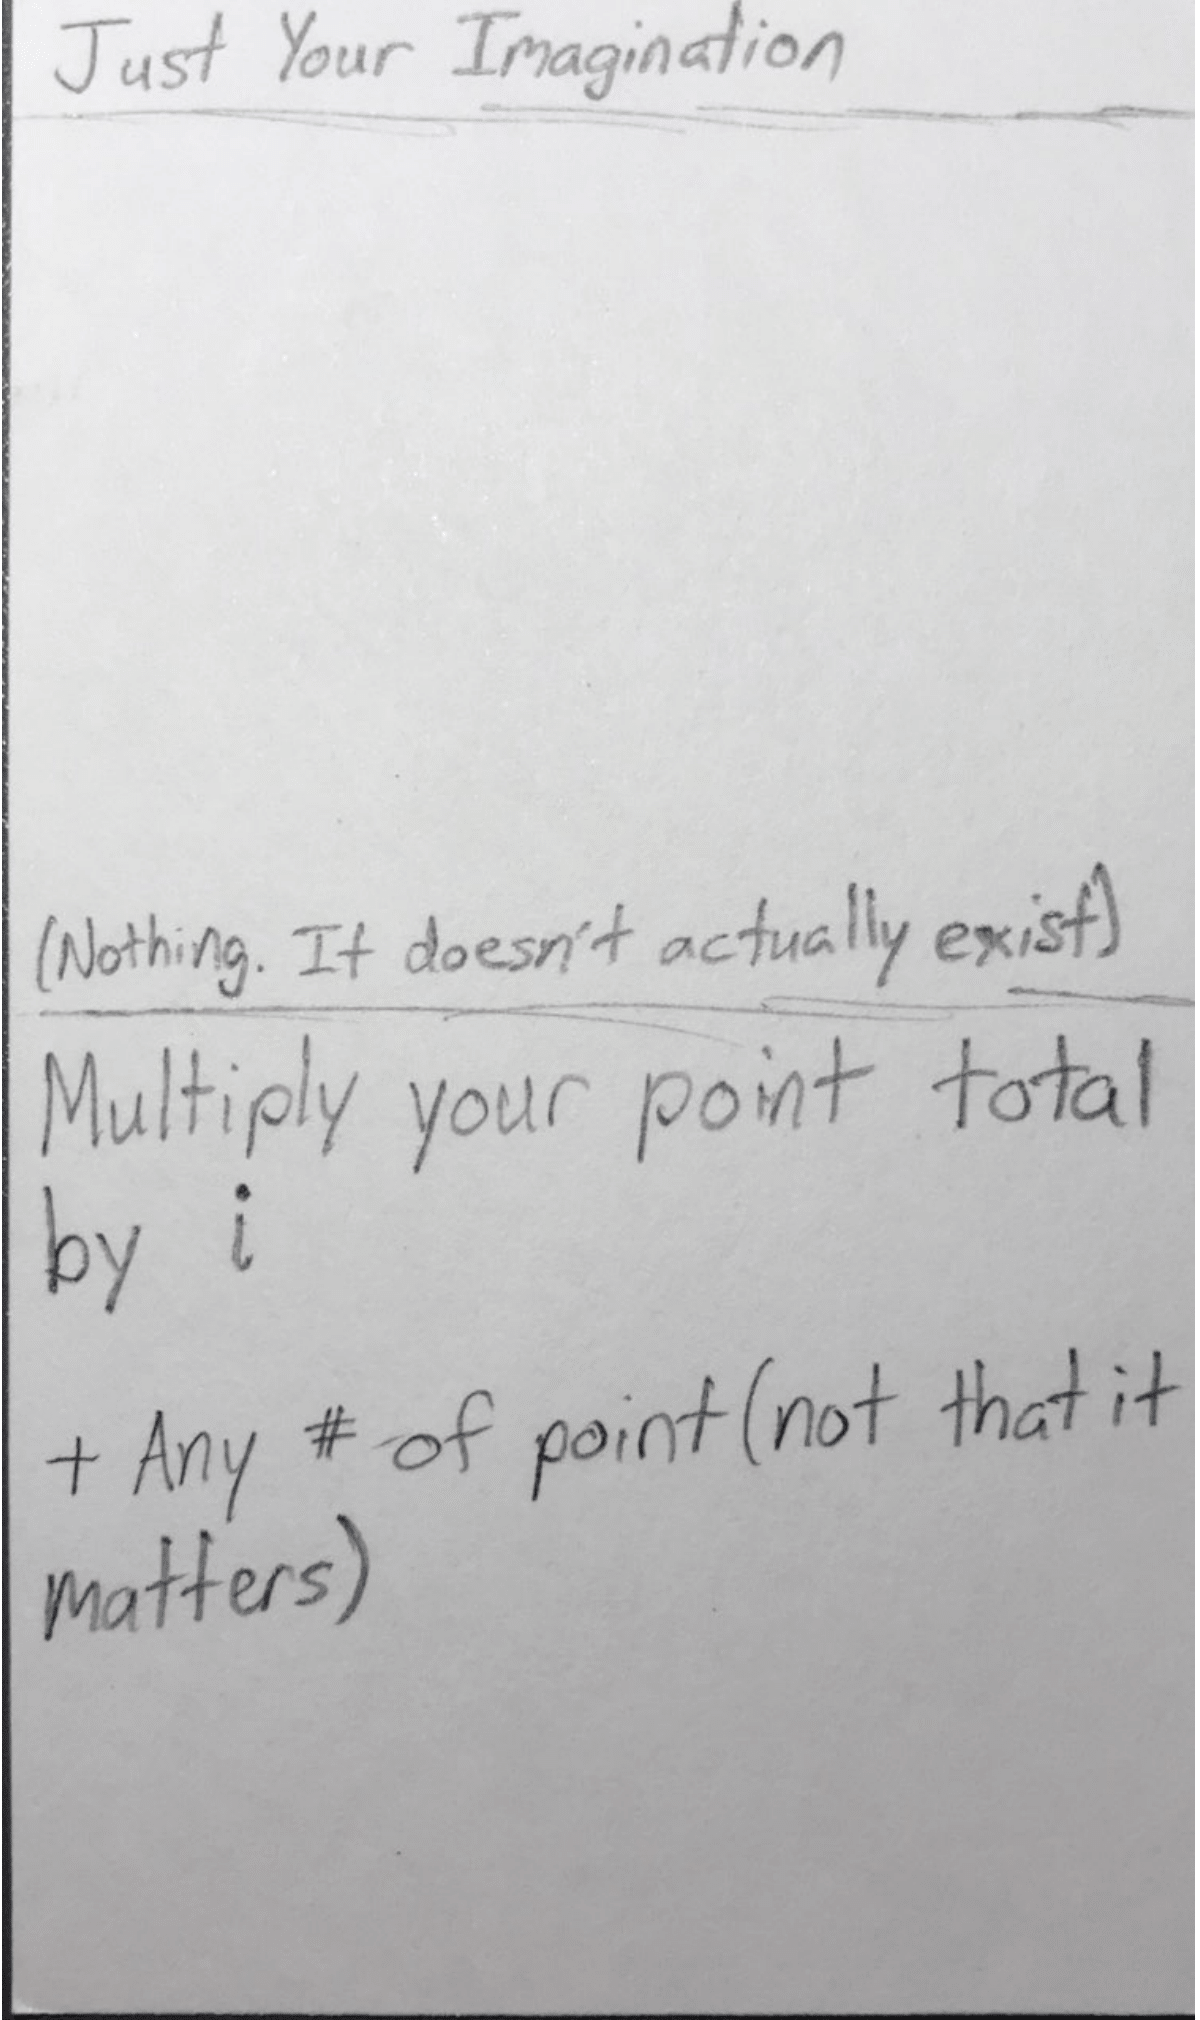 Just Your Imagination
(Nothing. It doesn't actually exist)
Multiply your point total
by i
+ Any # of point (not that it
matters)